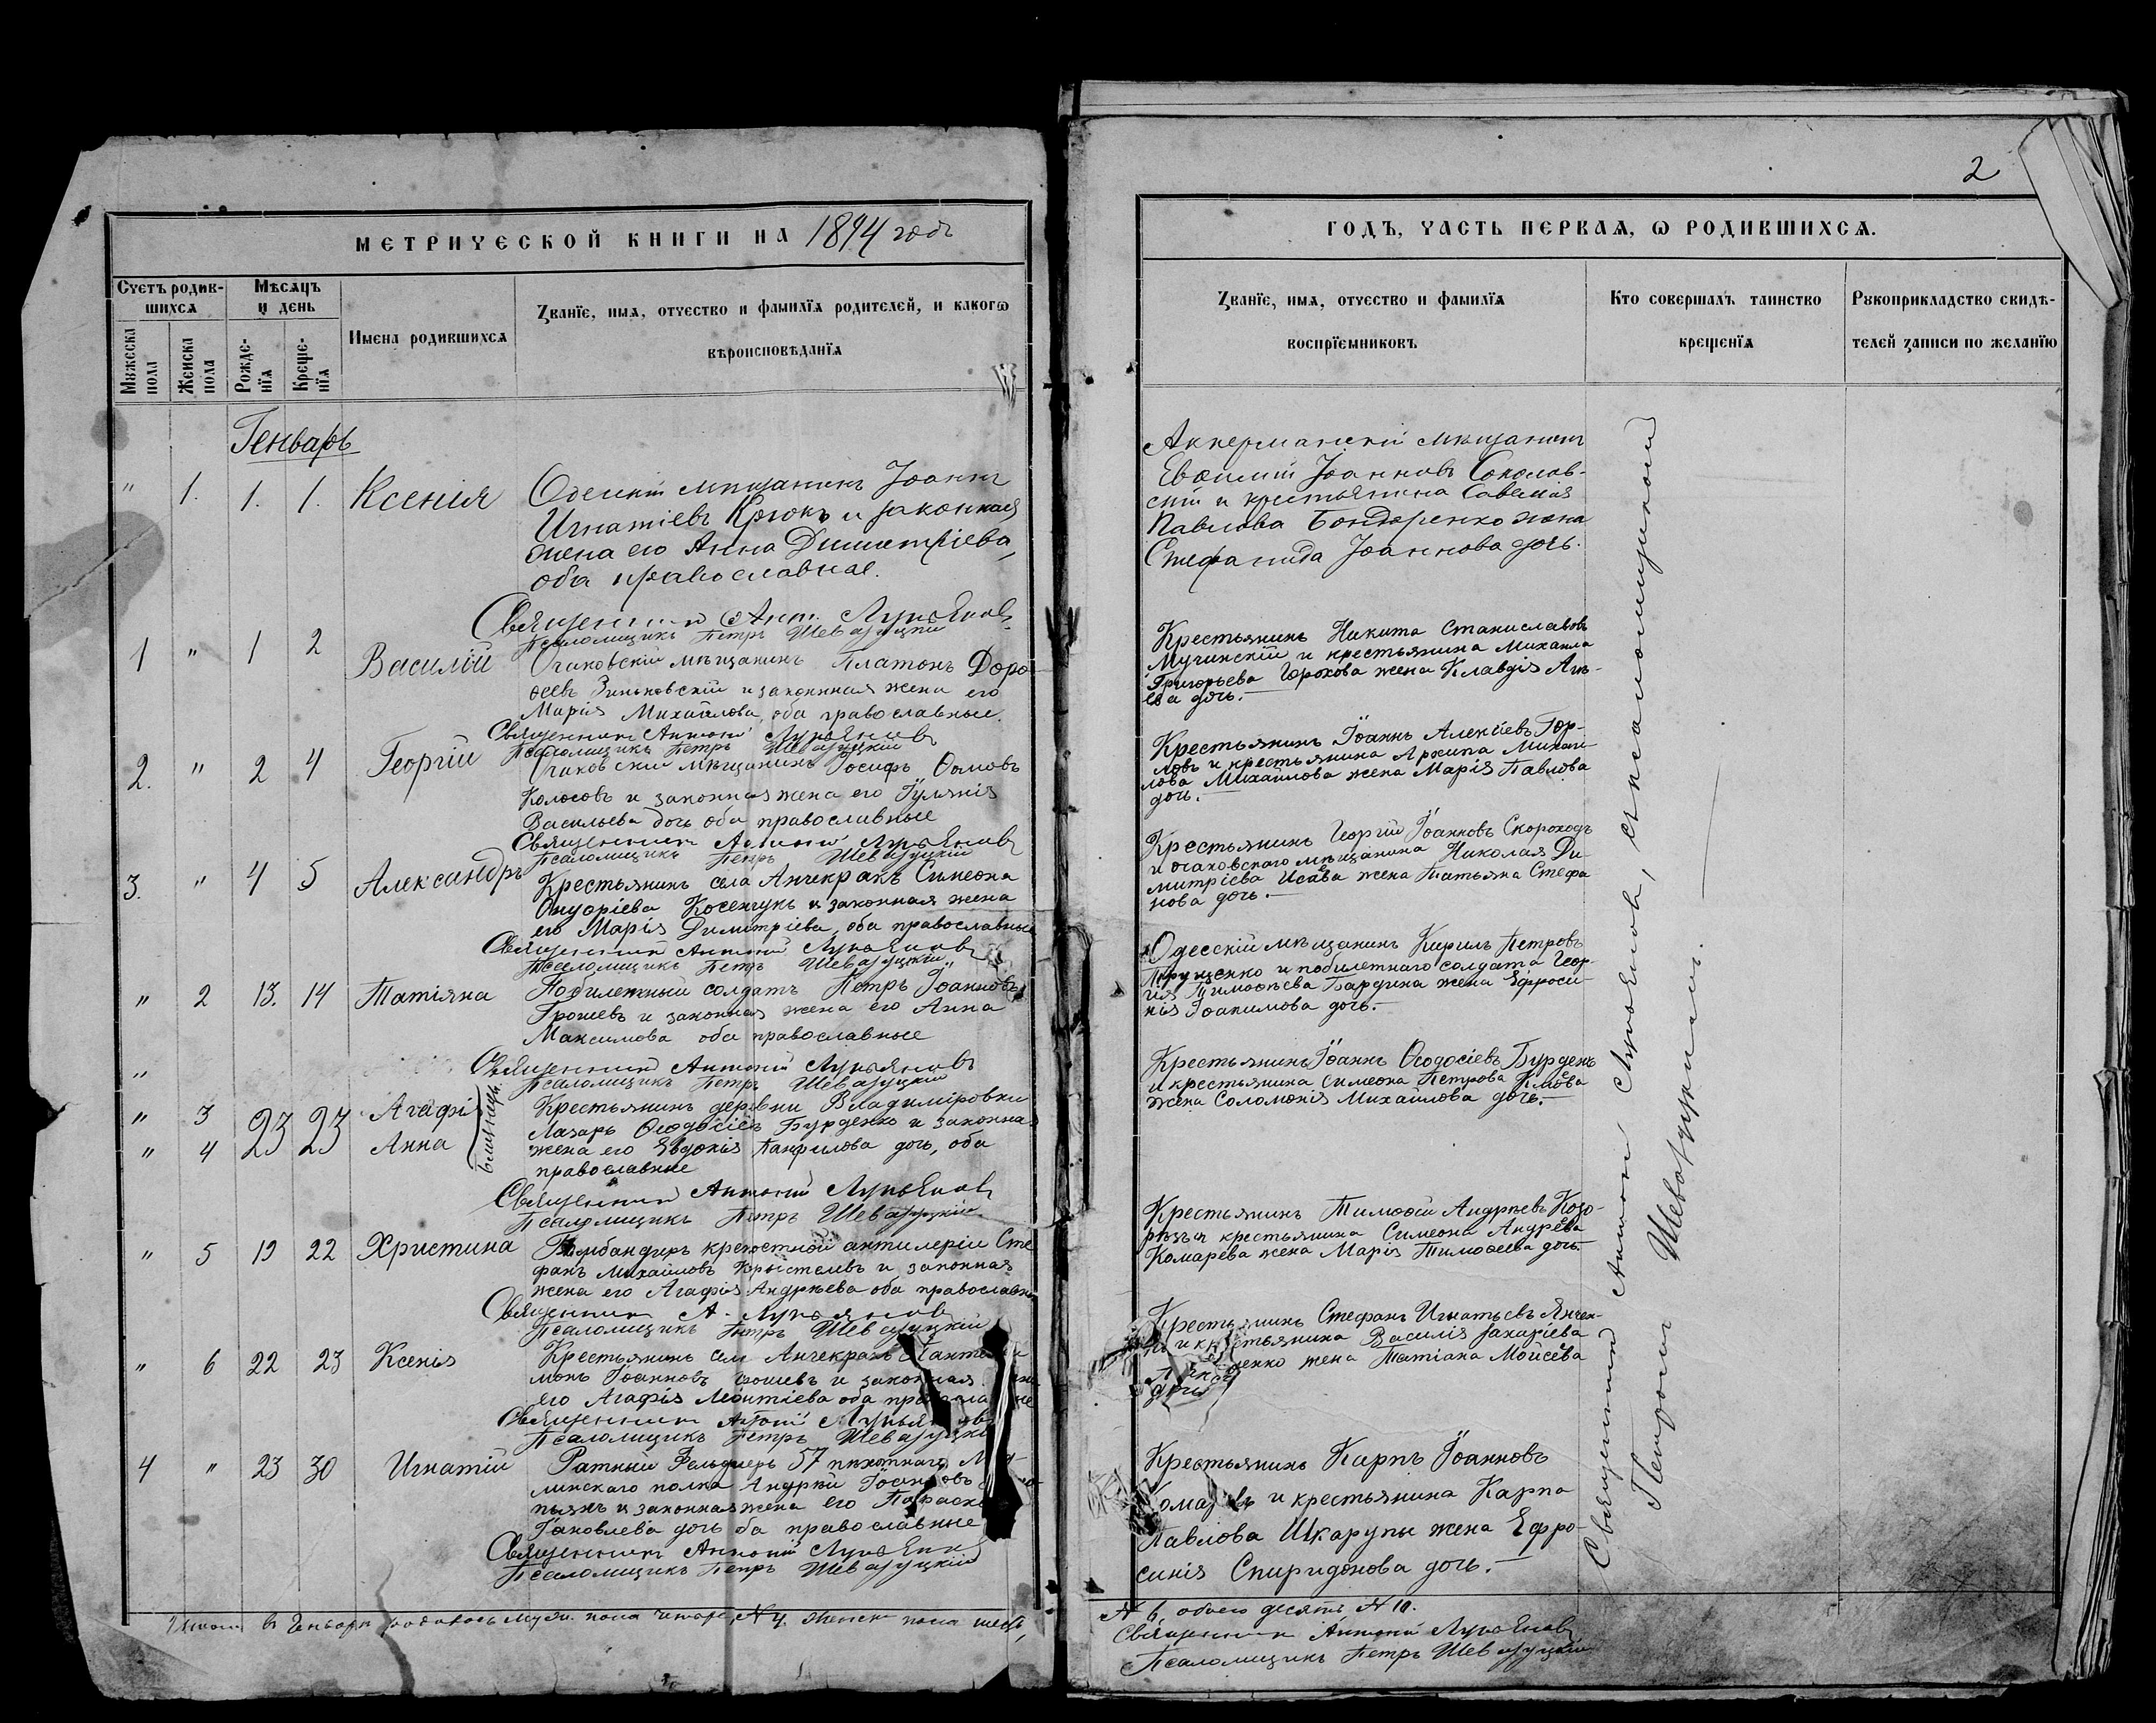 МЕТРИЧЕСКОЙ КНИГИ НА 1894 годъ
Счетъ родив-
шихся
Мѣсяцъ
и день
Мужеска
пола
Женска
пола
Рожде-
нїя
Креще-
нїя
Имена родившихся
Званїе, имя, отчество и фамилїя родителей, и какогѡ
вѣроисповѣданїя
Генварь
" 1. 1. 1. Ксенія
Одескій мѣщанинъ Іоаннъ
Игнатіевъ Крюкъ и законная
жена его Анна Димитріева,
оба православные.
Священникъ Ант. Лукьяновъ
Псаломщикъ Петръ Шевазуцкій
1 " 1 2 Василій
Очаковскій мѣщанинъ Платонъ Доро-
ѳеевъ Зиньковскій и законная жена его
Марія Михайлова, оба православные.
Священникъ Антоній Лукьяновъ
Псаломщикъ Петръ Шевазуцкій
2. " 2 4 Георгій
Очаковскій мѣщанинъ Іосифъ Ѳомовъ
Колосовъ и законная жена его Іуліянія
Васильева дочь оба православные
Священникъ Антоній Лукьяновъ
Псаломщикъ Петръ Шевазуцкій
3. " 4 5 Александръ
Крестьянинъ села Анчекракъ Симеона
Онуфріева Косенчукъ и законная жена
его Марія Димитріева, оба православные
Священникъ Антоній Лукьяновъ
Псаломщикъ Петръ Шевазуцкій
" 2 13. 14 Татіяна
Побилетный солдатъ Петръ Іоанновъ
Грошевъ и законная жена его Анна
Максимова оба православные
Священникъ Антоній Лукьяновъ
Псаломщикъ Петръ Шевазуцкій
"
" 3 23 23 Агафія
" 4 Анна
близнецы
Крестьянинъ деревни Владиміровки
Лазарь Ѳеодосіевъ Бурденко и законная
жена его Евдокія Панфилова дочь, оба
православные
Священникъ Антоній Лукьяновъ
Псаломщикъ Петръ Шевазуцкій
" 5 19 22 Христина
Бомбандиръ крепостной антилеріи Сте
фанъ Михайловъ и законная
жена его Агафія Андрѣева оба православн
Священникъ А. Лукьяновъ
Псаломщикъ Петръ Шевазуцкій
" 6 22 23 Ксенія
Крестьянинъ села Анчекракъ
монъ Іоанновъ и законная
его Агафія Леонтіева оба
Священникъ Антоній
Псаломщикъ Петръ
4 " 23 30 Игнатій
Ратный Фельдшеръ 57 пѣхотнаго
линскаго полка Андрей
и законная жена его
Іаковлева дочь оба православные
Священникъ Антоній
Псаломщикъ Петръ Шевазуцкій
Итого въ Генварѣ родилось муж. пола четыре, № 4, женск пола шесть,
2
ГОДЪ, ЧАСТЬ ПЕРВАЯ, Ѡ РОДИВШИХСЯ.
Званїе, имя, отчество и фамилїя
воспрїемниковъ
Кто совершалъ таинство
крещенїя
Рукоприкладство свидѣ-
телей записи по желанїю
Аккерманскій мѣщанинъ
Евѳимій Іоанновъ Соколов-
скій и крестьянина Савелія
Павлова Бондаренко жена
Стефанида Іоаннова дочь.
Крестьянинъ Никита Станиславовъ
Мучинскій и крестьянина Михаила
Григорьева Горохова жена Клавдія
ева дочь.—
Крестьянинъ Іоаннъ Алексіевъ Гор-
ловъ и крестьянина Архипа Михаи-
лова Михайлова жена Марія Павлова
дочь.—
Крестьянинъ Георгій Іоанновъ Скороходъ
и очаковскаго мѣщанина Николая Ди-
митріева Исаева жена Татьяна Стефа-
нова дочь.—
Одесскій мѣщанинъ Кирилъ Петровъ
и побилетнаго солдата Геор-
гія Тимофѣева Бардина жена Ефроси-
нія Іоакимова дочь.—
Крестьянинъ Іоаннъ Ѳеодосіевъ Бурденъ
и крестьянина Симеона Петрова
жена Соломонія Михайлова дочь.—
Крестьянинъ Тимоѳей Андрѣевъ Козо-
рѣзъ и крестьянина Симеона Андрѣева
Комарева жена Марія Тимоѳеева дочь.
Крестьянинъ Стефанъ Игнатьевъ Янчен-
ко и крестьянина Василія Захаріева
енко жена Татіана Моисѣева
дочь
Крестьянинъ Карпъ Іоанновъ
Комаревъ и крестьянина Карпа
Павлова Шкарупы жена Ефро-
синія Спиридонова дочь.—
Священникъ Антоній Лукьяновъ, съ псаломщикомъ
Петромъ Шевазуцкимъ.
№ 6, обоего десять № 10.
Священникъ Антоній Лукьяновъ
Псаломщикъ Петръ Шевазуцкій